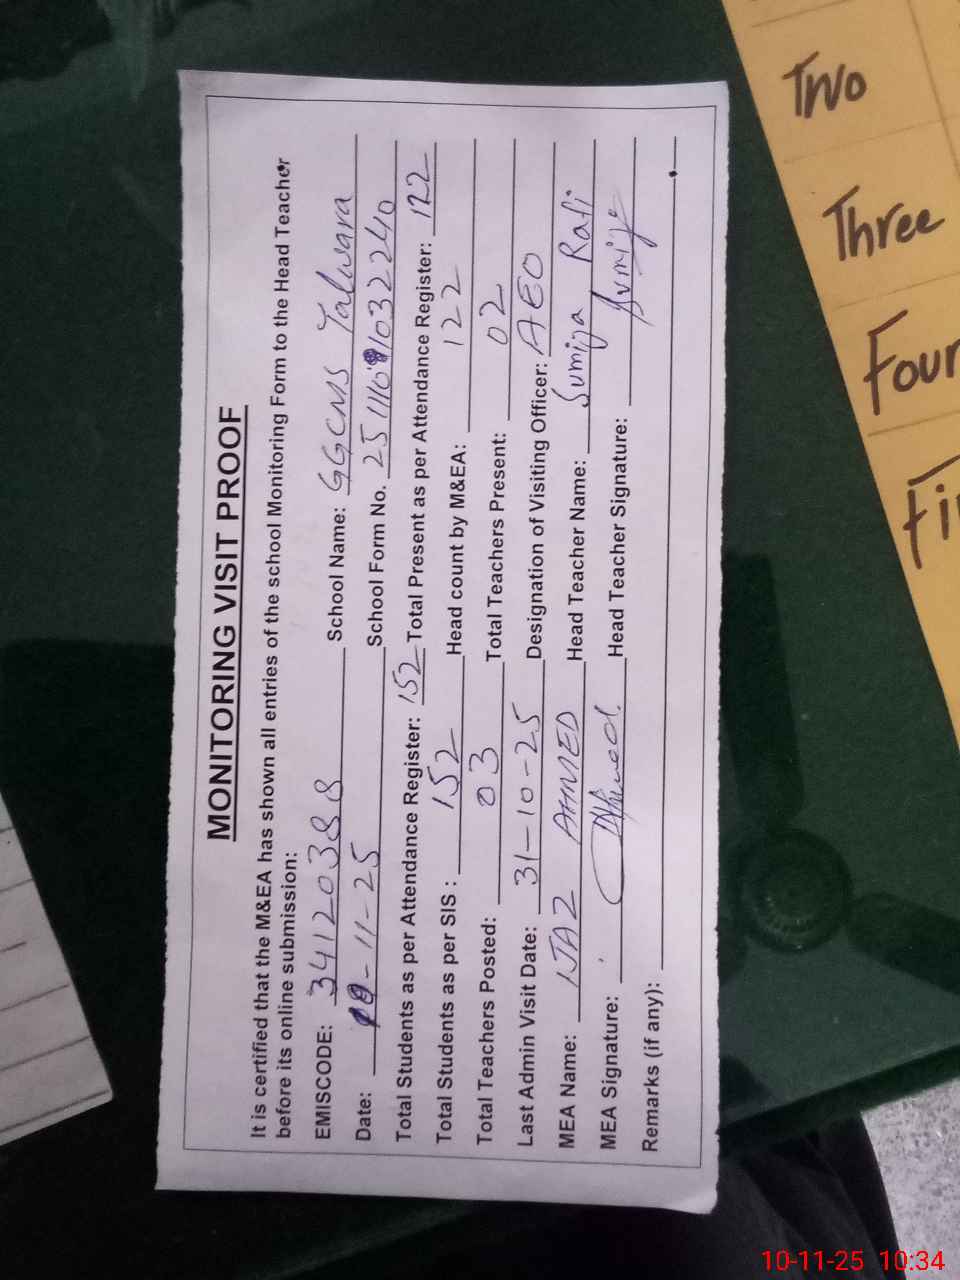 MONITORING VISIT PROOF
It is certified that the M&EA has shown all entries of the school Monitoring Form to the Head Teacher
before its online submission:
EMISCODE: 34120388 School Name: GGCMS Talwara
Date: 10-11-25 School Form No. 251110 1032240
Total Students as per Attendance Register: 152 Total Present as per Attendance Register: 122
Total Students as per SIS : 152 Head count by M&EA: 122
Total Teachers Posted: 03 Total Teachers Present: 02
Last Admin Visit Date: 31-10-25 Designation of Visiting Officer: AEO
MEA Name: IJAZ AHMED Head Teacher Name: Sumija Rafi
MEA Signature: Ahmed Head Teacher Signature: Sumija
Remarks (if any):
Two
Three
Four
Fi
10-11-25 10:34